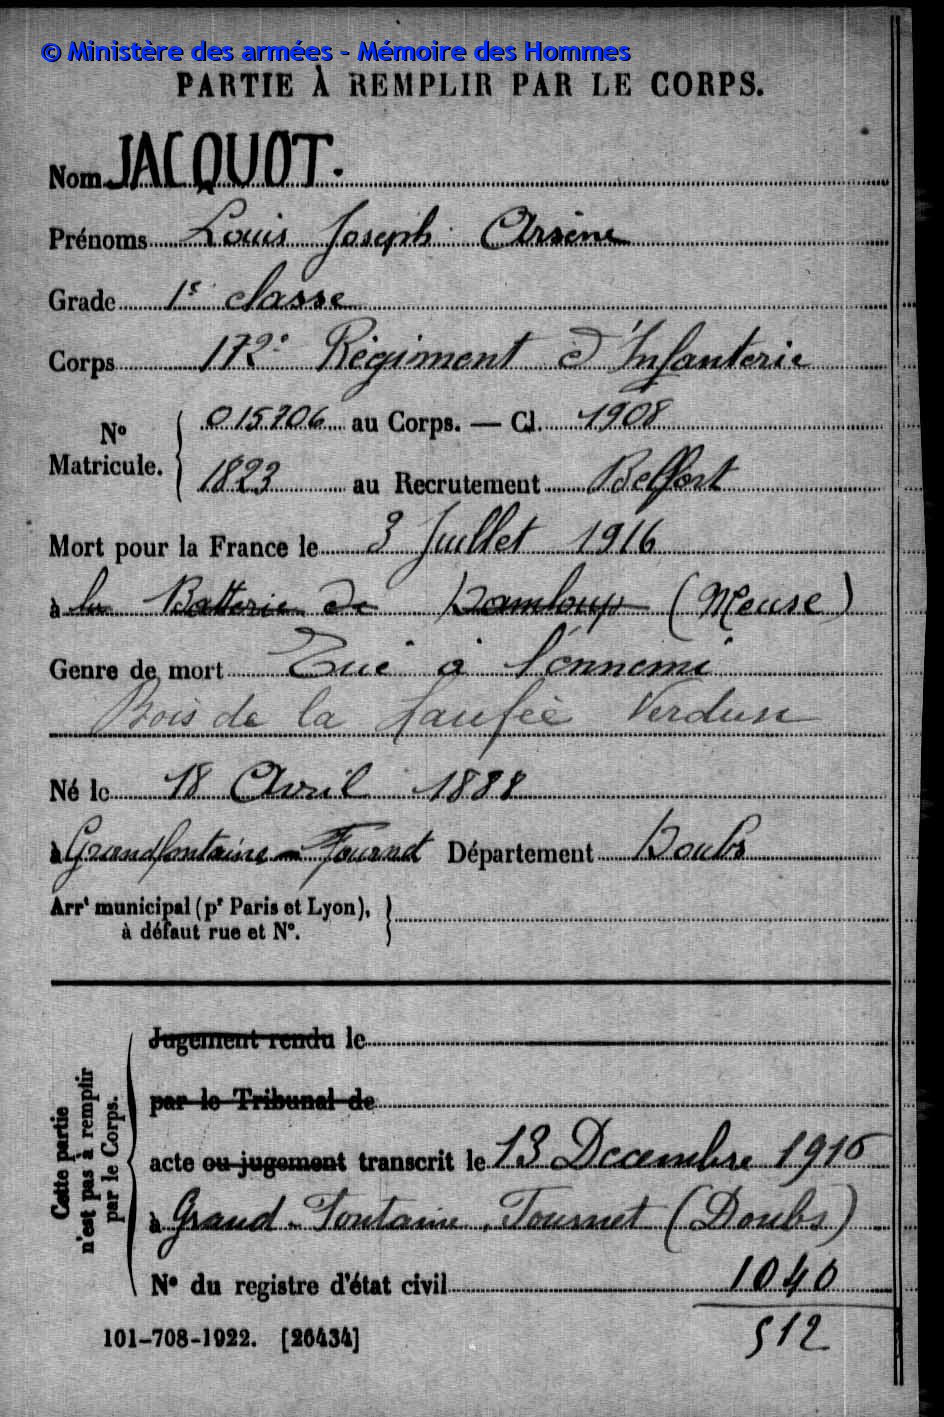 © Ministère des armées - Mémoire des Hommes
PARTIE À REMPLIR PAR LE CORPS.
Nom JACQUOT.
Prénoms Louis Joseph Arsène
Grade 1e classe
Corps 172e Régiment d'Infanterie
No Matricule. 015706 au Corps. — Cl. 1908
1823 au Recrutement Belfort
Mort pour la France le 3 Juillet 1916
à la Batterie de Damloup (Meuse)
Genre de mort Tué à l'ennemi
Bois de la Laufée Verdun
Né le 18 Avril 1888
à Grandfontaine - Fournet Département Doubs
Arrt municipal (pr Paris et Lyon),
à défaut rue et No.
Cette partie
n'est pas à remplir
par le Corps.
Jugement rendu le
par le Tribunal de
acte ou jugement transcrit le 13 Decembre 1916
à Grand-Fontaine, Fournet (Doubs)
No du registre d'état civil 1040
512
101-708-1922. [26434]